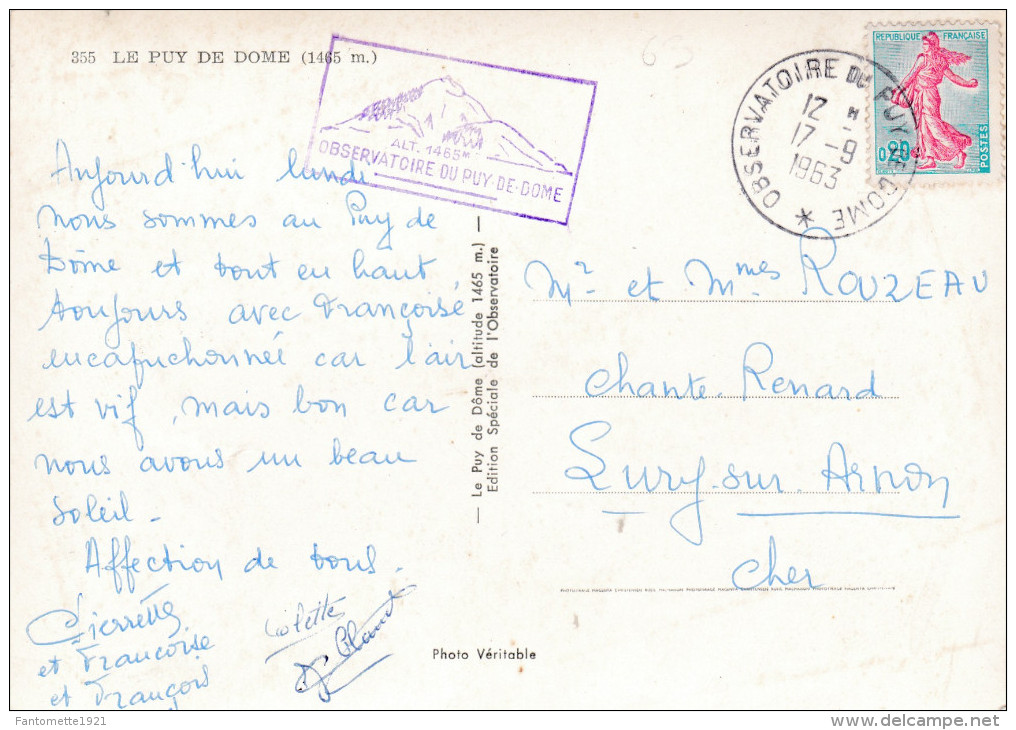 355 LE PUY DE DOME (1465 m.)
ALT. 1465 M
OBSERVATOIRE DU PUY-DE-DOME
OBSERVATOIRE DU PUY DE DOME *
12 H
17 -9
1963
REPUBLIQUE FRANÇAISE
0,20
POSTES
Aujourd'hui lundi
nous sommes au Puy de
Dôme et tout en haut
toujours avec Françoise
encapuchonnée car l'air
est vif, mais bon car
nous avons un beau
soleil -
Affection de tous.
Pierrette
et Françoise
et François
Colette
— Le Puy de Dôme (altitude 1465 m.) —
— Edition Spéciale de l'Observatoire
Mr et Mmes ROUZEAU
Chante-Renard
Lury-sur-Arnon
Cher
Photo Véritable
Fantomette1921
delcampe.net